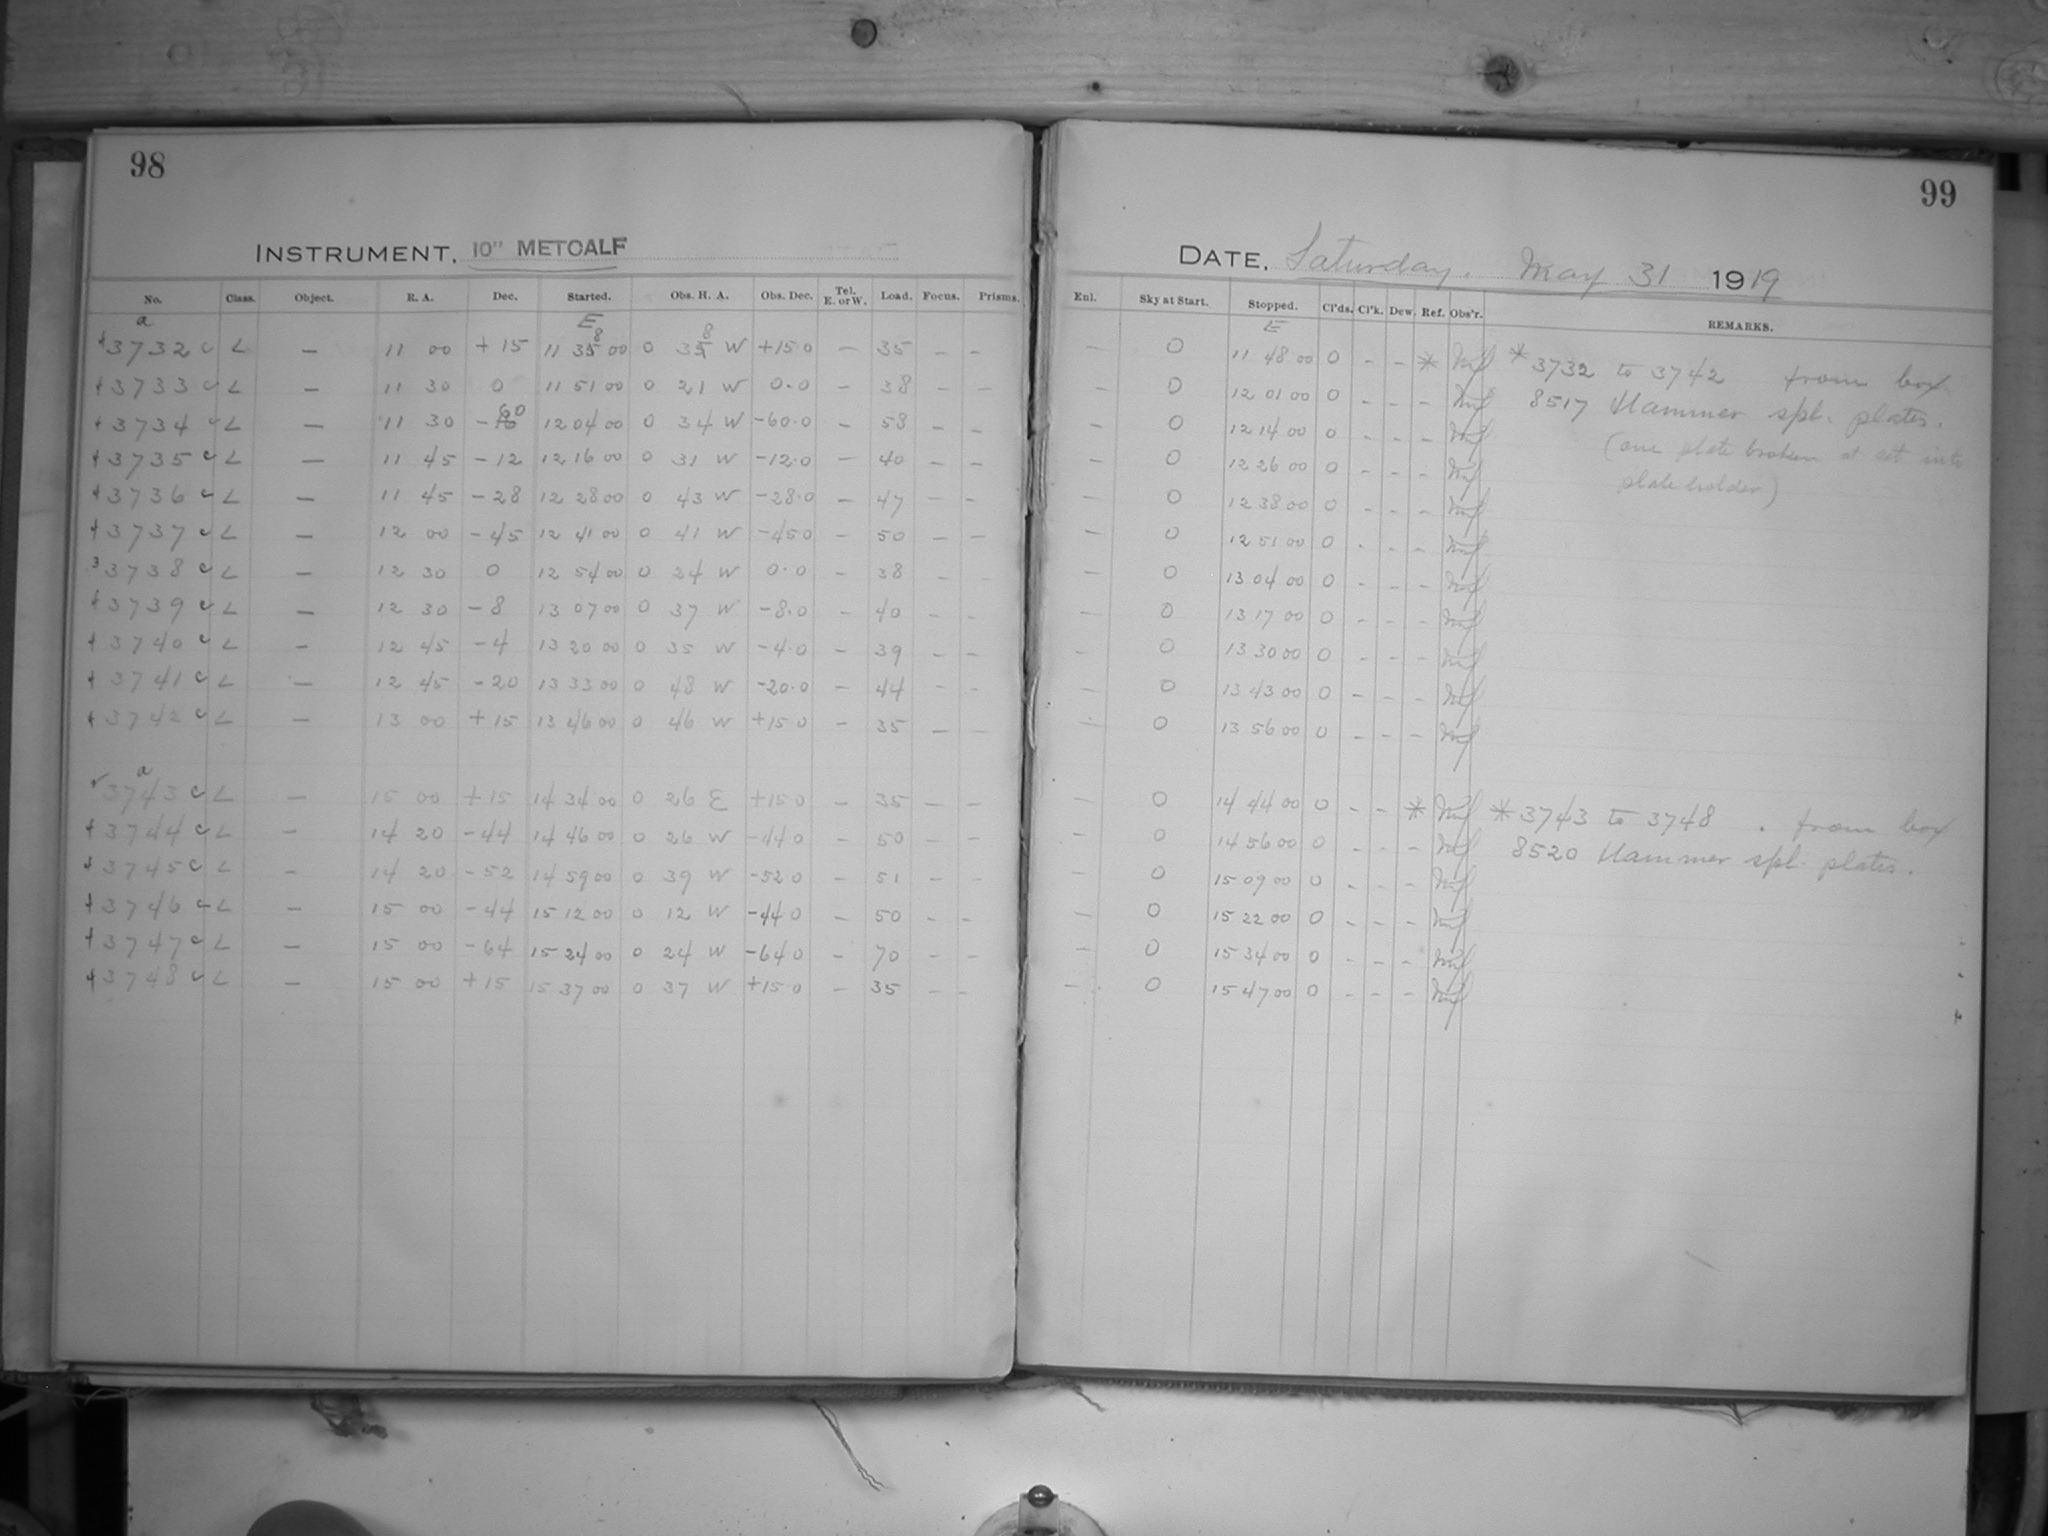 98
INSTRUMENT, 10" METCALF
No. Class. Object. R. A. Dec. Started. Obs. H. A. Obs. Dec. Tel. E. or W. Load. Focus. Prisms.
a E
3732 c L — 11 00 +15 11 38 00 0 38 W +15 0 — 35 — —
3733 c L — 11 30 0 11 51 00 0 21 W 0.0 — 38 — —
3734 c L — 11 30 -60 12 04 00 0 34 W -60.0 — 58 — —
3735 c L — 11 45 -12 12 16 00 0 31 W -12.0 — 40 — —
3736 c L — 11 45 -28 12 28 00 0 43 W -28.0 — 47 — —
3737 c L — 12 00 -45 12 41 00 0 41 W -45 0 — 50 — —
3738 c L — 12 30 0 12 54 00 0 24 W 0.0 — 38 — —
3739 c L — 12 30 -8 13 07 00 0 37 W -8.0 — 40 — —
3740 c L — 12 45 -4 13 20 00 0 35 W -4.0 — 39 — —
3741 c L — 12 45 -20 13 33 00 0 48 W -20.0 — 44 — —
3742 c L — 13 00 +15 13 46 00 0 46 W +15 0 — 35 — —
a
3743 c L — 15 00 +15 14 34 00 0 26 E +15 0 — 35 — —
3744 c L — 14 20 -44 14 46 00 0 26 W -44 0 — 50 — —
3745 c L — 14 20 -52 14 59 00 0 39 W -52 0 — 51 — —
3746 c L — 15 00 -44 15 12 00 0 12 W -44 0 — 50 — —
3747 c L — 15 00 -64 15 24 00 0 24 W -64 0 — 70 — —
3748 c L — 15 00 +15 15 37 00 0 37 W +15.0 — 35 — —
99
DATE, Saturday. May 31 1919
Enl. Sky at Start. Stopped. Cl'ds. Cl'k. Dew. Ref. Obs'r. REMARKS.
E
— 0 11 48 00 0 - - * * 3732 to 3742 from box
— 0 12 01 00 0 - - - 8517 Hammer spl. plates.
— 0 12 14 00 0 - - - (one plate broken at set into
— 0 12 26 00 0 - - - plate holder)
— 0 12 38 00 0 - - -
— 0 12 51 00 0 - - -
— 0 13 04 00 0 - - -
— 0 13 17 00 0 - - -
— 0 13 30 00 0 - - -
— 0 13 43 00 0 - - -
— 0 13 56 00 0 - - -
— 0 14 44 00 0 - - * * 3743 to 3748 . from box
— 0 14 56 00 0 - - - 8520 Hammer spl. plates.
— 0 15 09 00 0 - - -
— 0 15 22 00 0 - - -
— 0 15 34 00 0 - - -
— 0 15 47 00 0 - - -